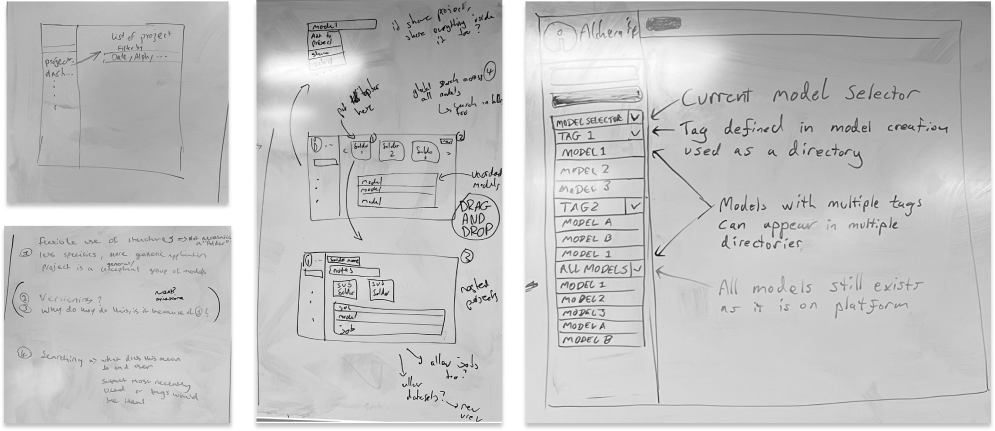 List of project
Filter by
Date, Alpha, ...
project
dash...
flexible use of structures
less specific, more generic application
project is a conceptual group of models
general
② Versioning?
③ why do they do this, is it because of ①?
④ Searching → what does this mean
to end user
suggest most recently
used or tags would
be ideal
model
Add to
project
share
if share project,
share everything inside
it too?
④
global search across
all models
↳ search in
too
put
here
①
②
folder
1
folder
2
folder
3
model
model
model
models
DRAG
AND
DROP
③
folder name
notes
sub
folder
sub
folder
job
model
job
nested
projects
allow jobs
too?
allow
datasets?
→ new
view
Alchemite
MODEL SELECTOR
TAG 1
MODEL 1
MODEL 2
MODEL 3
TAG 2
MODEL A
MODEL B
MODEL 1
ALL MODELS
MODEL 1
MODEL 2
MODEL 3
MODEL A
MODEL B
Current model selector
Tag defined in model creation
used as a directory
Models with multiple tags
can appear in multiple
directories
All models still exists
as it is on platform